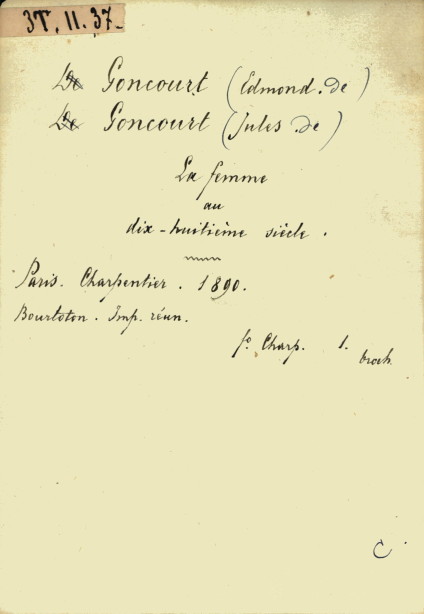 3T. 11. 37.
De Goncourt (Edmond. de)
De Goncourt (Jules de)
La femme
au
dix-huitième siècle.
Paris. Charpentier. 1890.
Bourloton. Imp. réun.
fo Charp. 1. broch.
C